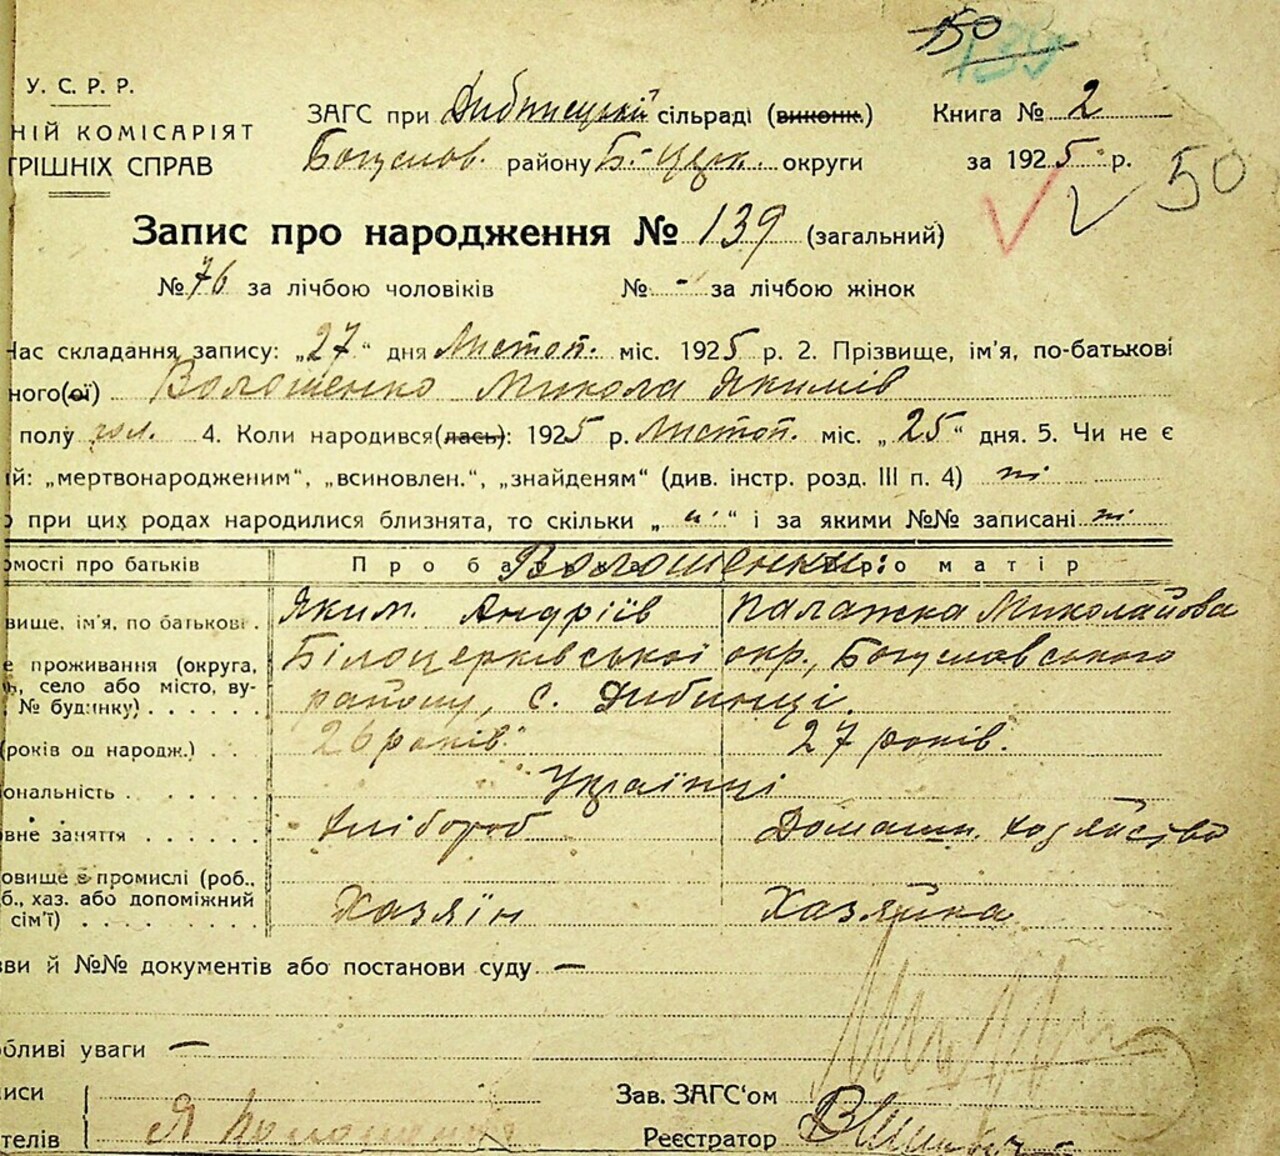 150
139
У. С. Р. Р.
НІЙ КОМІСАРІЯТ
ТРІШНІХ СПРАВ
ЗАГС при Дибинецькій сільраді (виконк.)
Богуслов. району Б.-Церк. округи
Книга № 2
за 1925 р.
50
Запис про народження № 139 (загальний)
№ 76 за лічбою чоловіків № - за лічбою жінок
Час складання запису: „27“ дня Листоп. міс. 1925 р. 2. Прізвище, ім'я, по-батькові
ного(ої) Волошенко Микола Якимів
полу чол. 4. Коли народився(лась): 1925 р. Листоп. міс. „25“ дня. 5. Чи не є
ій: „мертвонародженим“, „всиновлен.“, „знайденям“ (див. інстр. розд. III п. 4) ні
о при цих родах народилися близнята, то скільки „ “ і за якими №№ записані ні
омості про батьків Про батька Про матір
Волошенки:
вище, ім'я, по батькові . Яким Андріїв Палажка Миколайова
е проживання (округа, Білоцерківської окр., Богуславського
ь, село або місто, ву- району, с. Дибинці.
№ будинку) . . . . . .
(років од народж.) . . 26 років. 27 років.
ональність . . . . . . Українці
вне заняття . . . . . . Хлібороб Домашн. хозяйство
овище в промислі (роб.,
б., хаз. або допоміжний Хазяїн Хазяйка
сім'ї) . . . . . . . .
зви й №№ документів або постанови суду —
обливі уваги —
иси Зав. ЗАГС'ом
телів Я Реєстратор